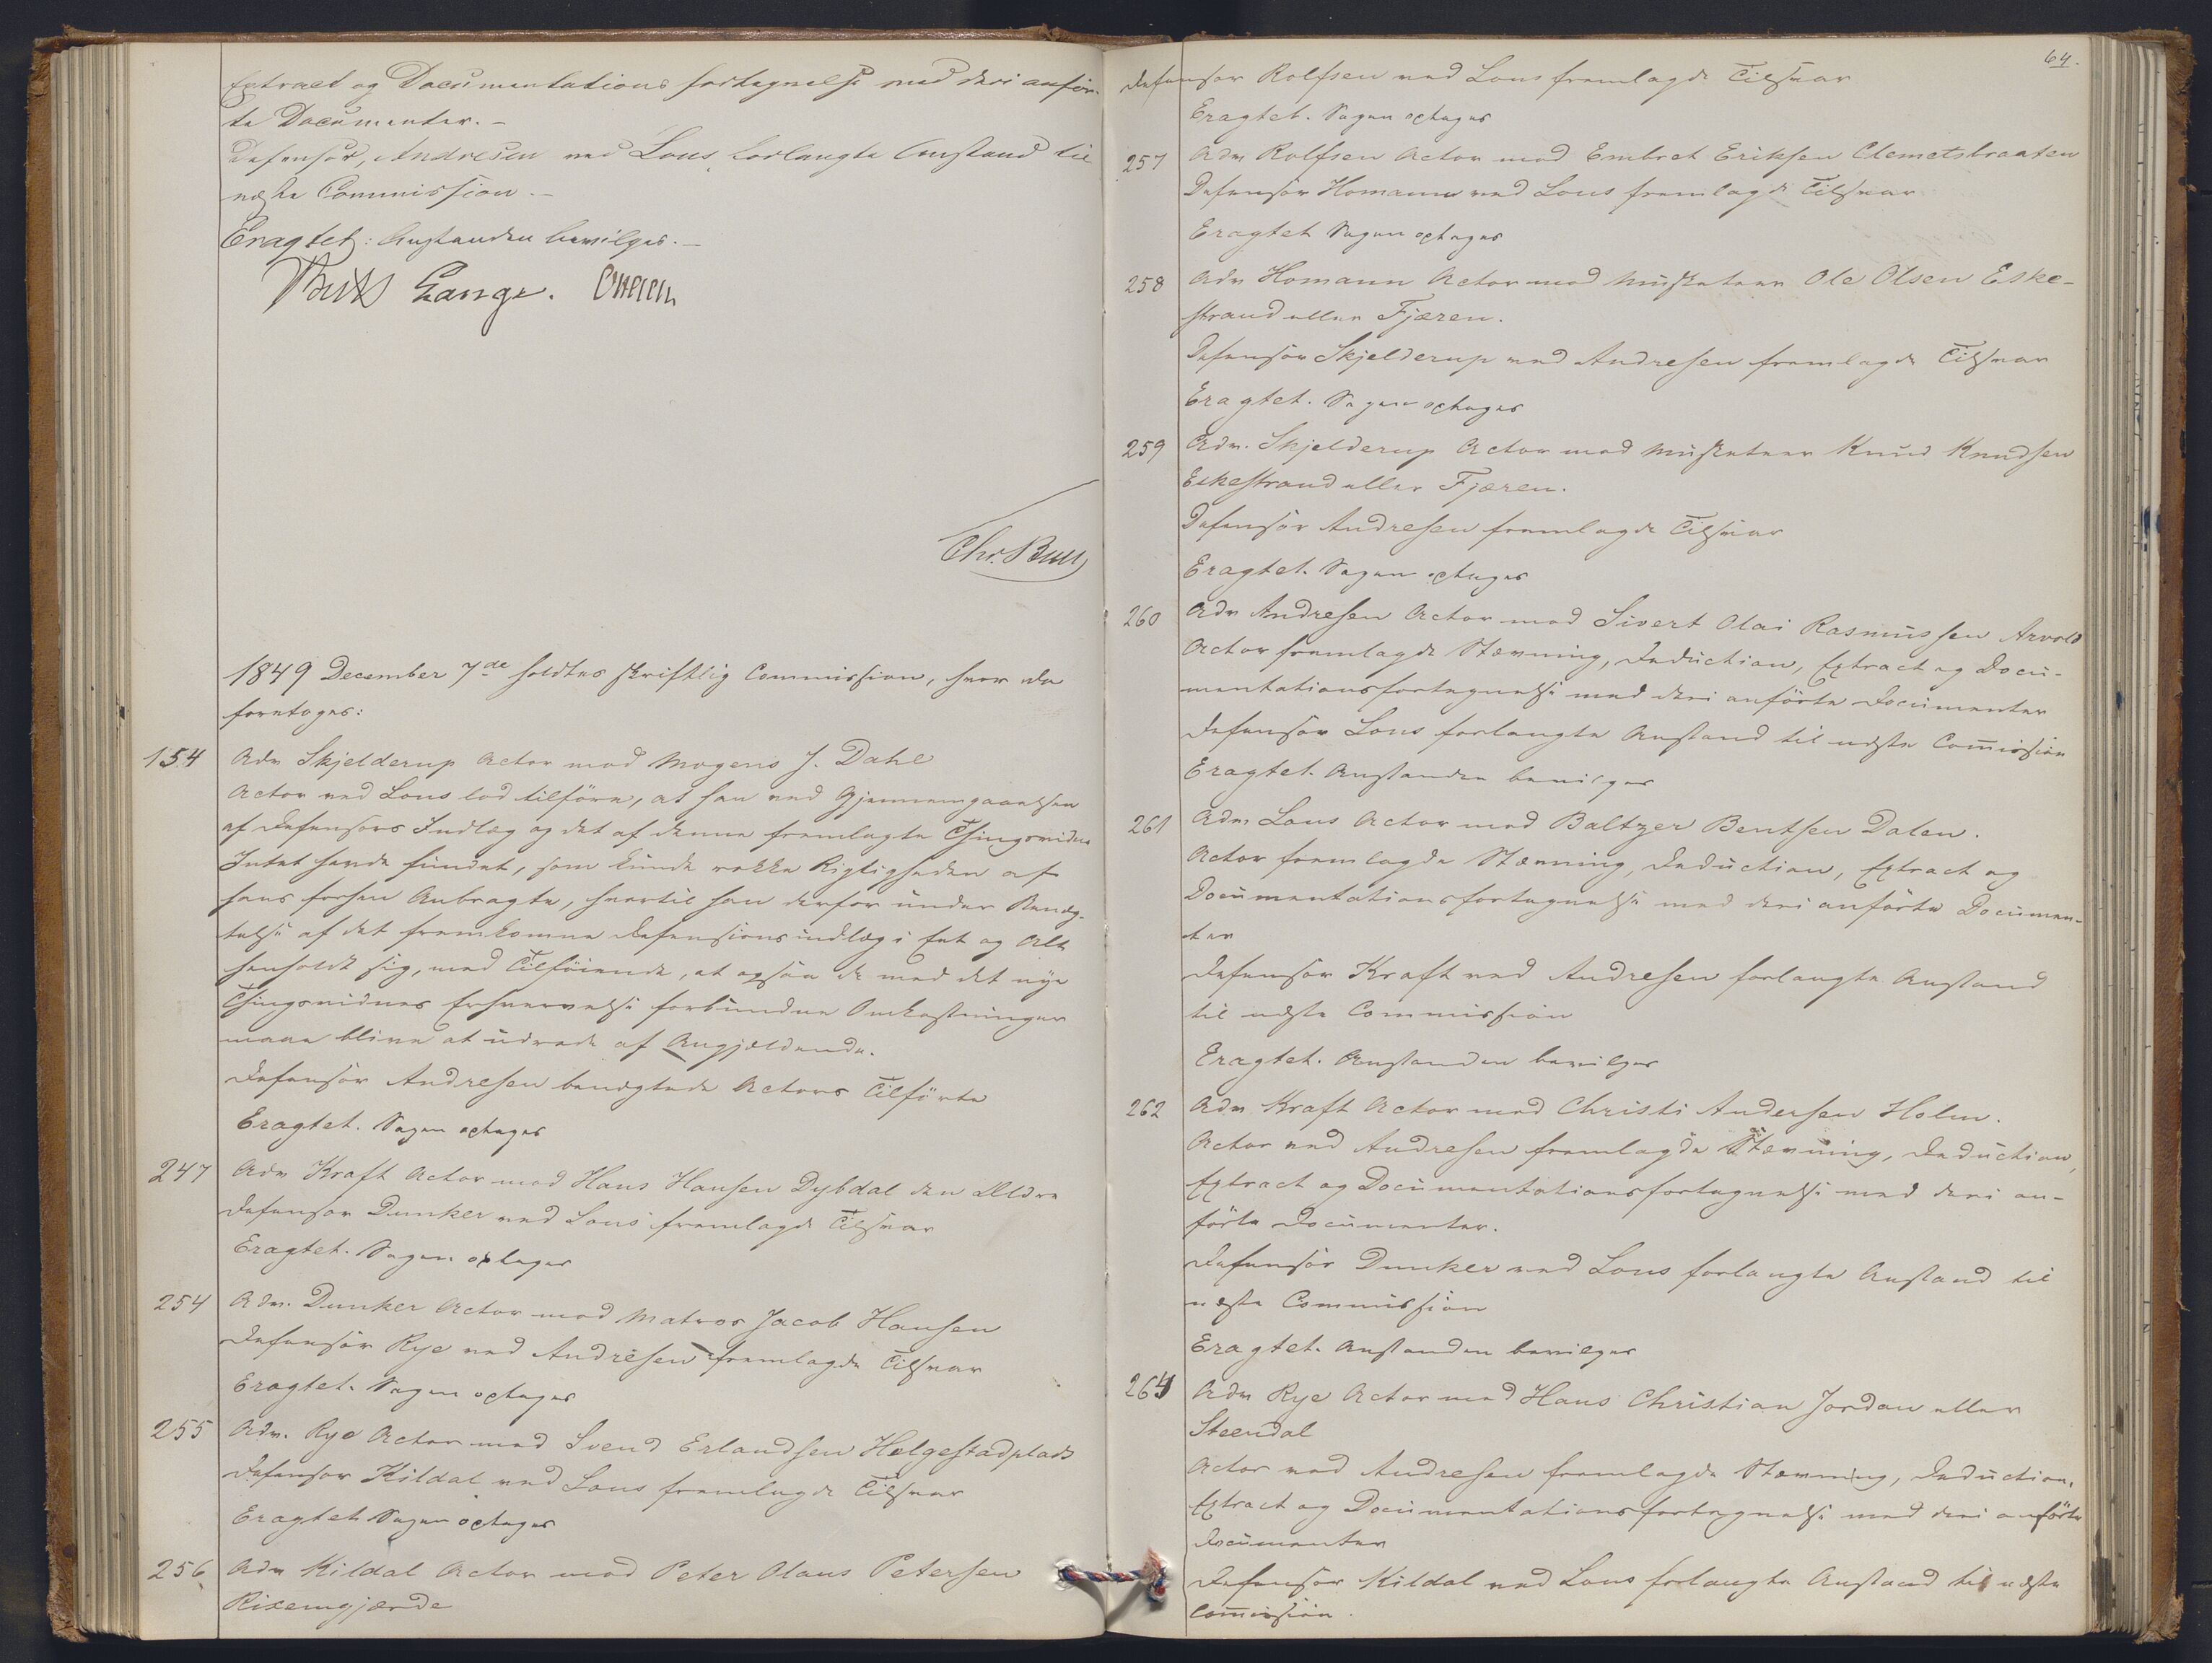 Extract og Documentations fortegnelse med deri anfør-
te Documenter. –
Defensor, Andresen ved Lous forlangte Anstand til
næste Commission. –
Eragtet: Anstanden bevilges. –
Lange.
Chr. Bull
1849 December 7de holdtes skriftlig Commission, hvor da
foretoges:
154 Adv Skjelderup Actor mod Mogens J. Dahl
Actor ved Lous lod tilföre, at han ved Gjennemgaaelsen
af Defensors Indlæg og det af denne fremlagte Thingsvidne
Intet havde fundet, som kunde rokke Rigtigheden af
hans forhen Anbragte, hvortil han derfor under Benæg-
telse af det fremkomne Defensionsindlæg i Eet og Alt
henholdt sig, med Tilföiende, at ogsaa de med det nye
Thingsvidnes Erhvervelse forbundne Omkostninger
maae blive at udrede af Angjældende.
Defensor Andresen benægtede Actors Tilförte
Eragtet. Sagen optages
247 Adv Kraft Actor mod Hans Hansen Dybdal den Ældre
Defensor Dunker ved Lous fremlagde Tilsvar
Eragtet. Sagen optages
254 Adv. Dunker Actor mod Matros Jacob Hansen
Defensor Rye ved Andresen fremlagde Tilsvar
Eragtet. Sagen optages
255 Adv. Rye Actor mod Svend Erlandsen Helgestadplads
Defensor Kildal ved Lous fremlagde Tilsvar
Eragtet Sagen optages
256 Adv Kildal Actor mod Peter Olaus Petersen
Rixengjærde
64.
Defensor Rolfsen ved Lous fremlagde Tilsvar
Eragtet. Sagen optages
257 Adv Rolfsen Actor mod Embret Eriksen Clemetsbraaten
Defensor Homann ved Lous fremlagde Tilsvar
Eragtet Sagen optages
258 Adv Homann Actor mod Musketeer Ole Olsen Eske-
strand eller Fjæren.
Defensor Skjelderup ved Andresen fremlagde Tilsvar
Eragtet. Sagen optages
259 Adv. Skjelderup Actor mod Musketeer Knud Knudsen
Eskestrand eller Fjæren.
Defensor Andresen fremlagde Tilsvar
Eragtet. Sagen optages
260 Adv Andresen Actor mod Sivert Olai Rasmussen Arvold
Actor fremlagde Stævning, Deduction, Extract og Docu-
mentationsfortegnelse med deri anförte Documenter
Defensor Lous forlangte Anstand til næste Com̅ission
Eragtet. Anstanden bevilges
261 Adv Lous Actor mod Baltzer Bentsen Dalen.
Actor fremlagde Stævning, Deduction, Extract og
Documentationsfortegnelse med deri anförte Documen-
ter
Defensor Kraft ved Andresen forlangte Anstand
til næste Commission
Eragtet. Anstanden bevilges
262 Adv Kraft Actor mod Christi Andersen Holm.
Actor ved Andresen fremlagde Stævning, Deduction,
Extract og Documentationsfortegnelse med deri an-
förte Documenter.
Defensor Dunker ved Lous forlangte Anstand til
næste Commission
Eragtet. Anstanden bevilges
264 Adv Rye Actor mod Hans Christian Jordan eller
Steendal
Actor ved Andresen fremlagde Stævning, Deduction,
Extract og Documentationsfortegnelse med deri anförte
Documenter
Defensor Kildal ved Lous forlangte Anstand til næste
Com̅ission.